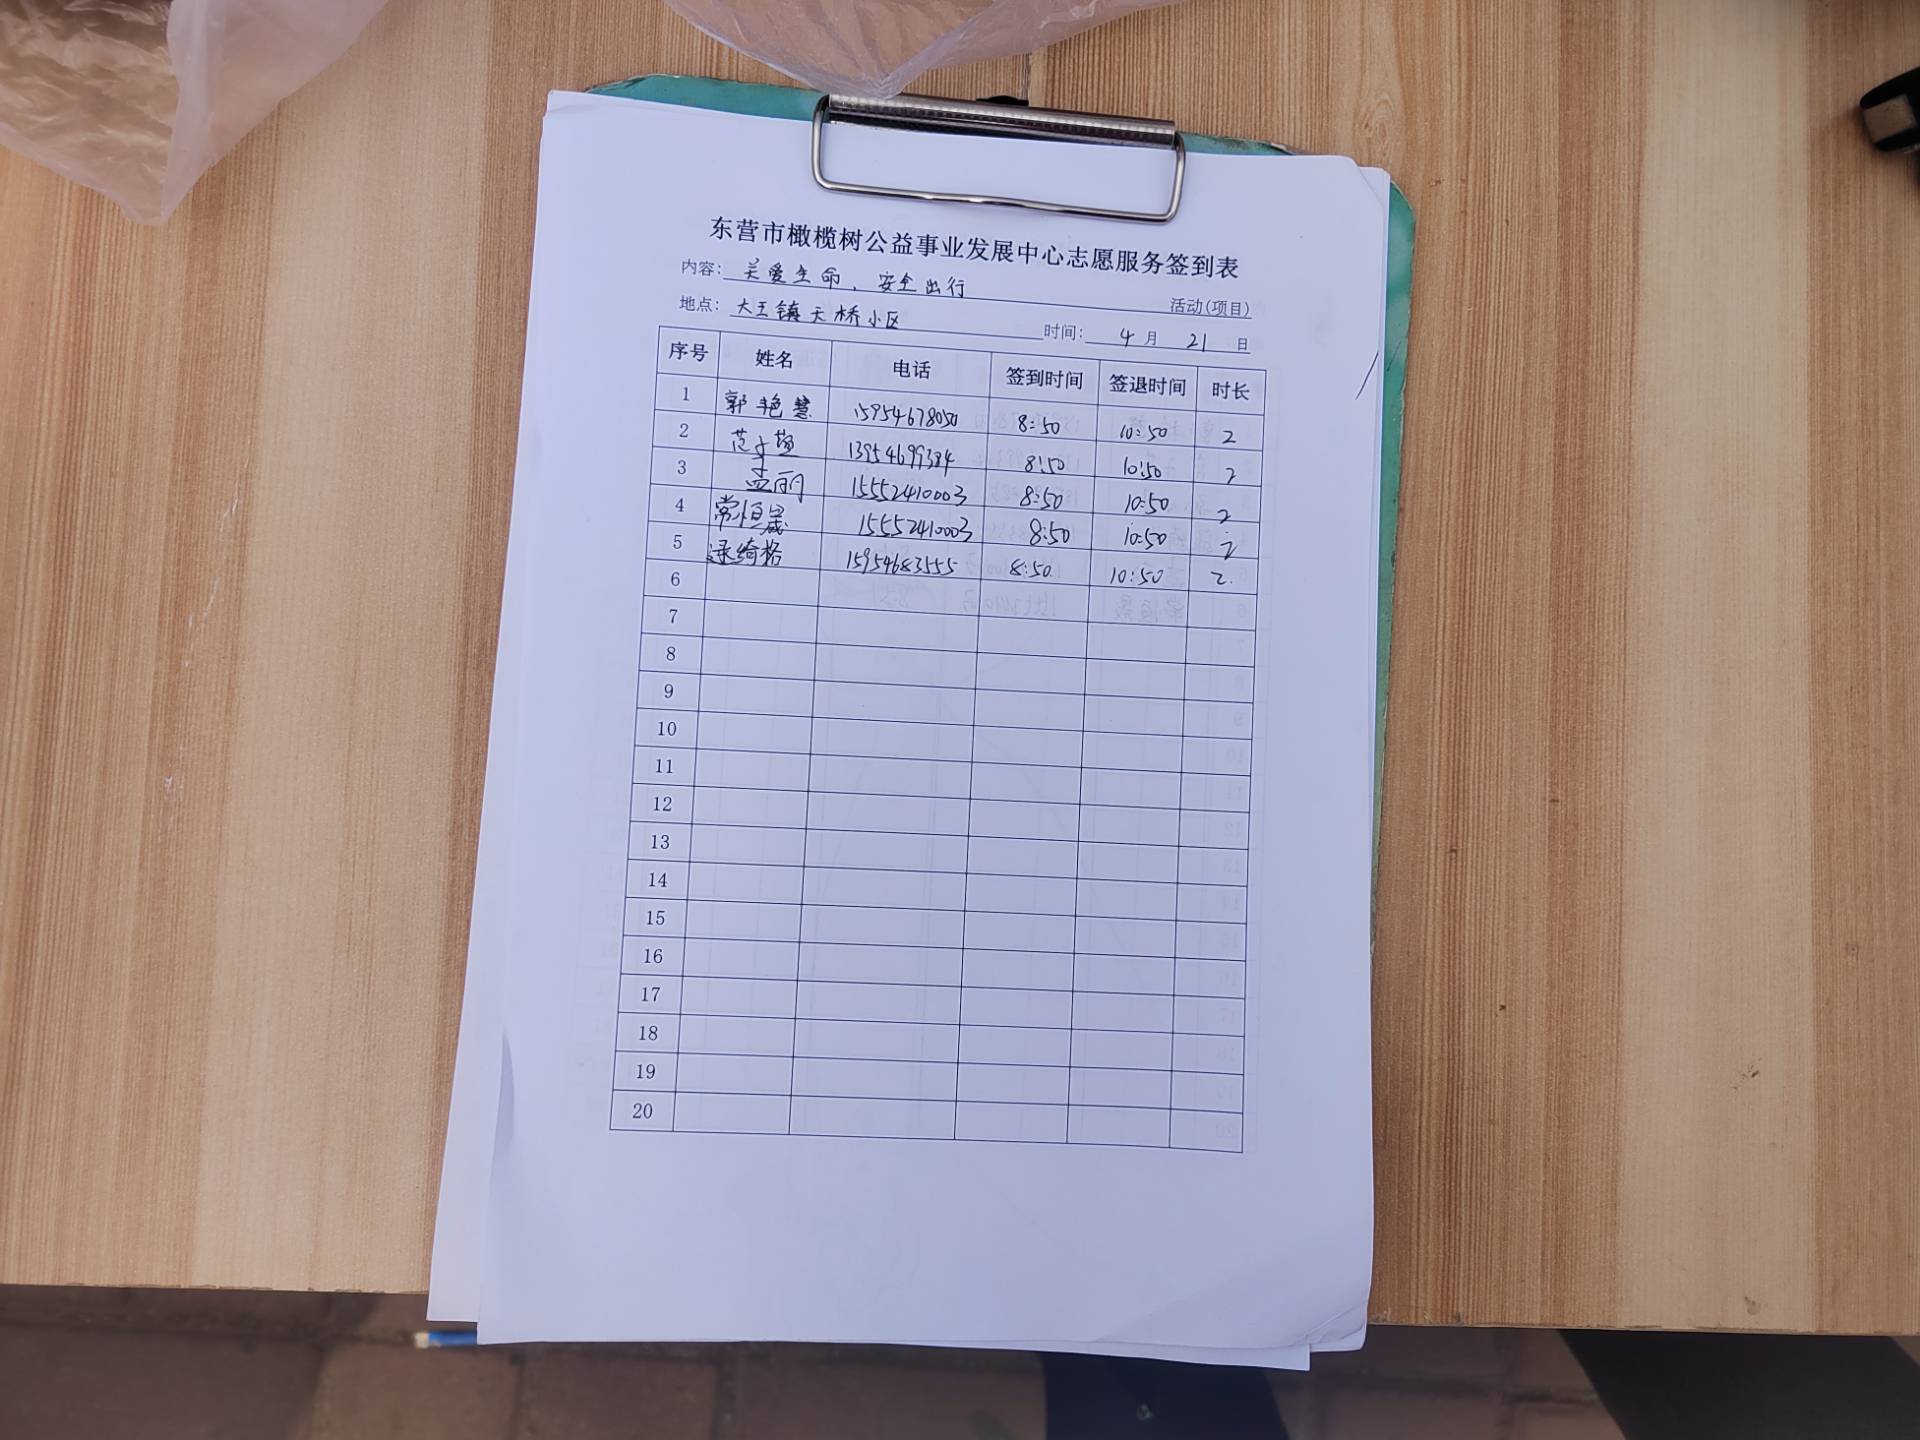 东营市橄榄树公益事业发展中心志愿服务签到表
内容：关爱生命、安全出行 活动(项目)
地点：大王镇天桥小区 时间：4月21日
序号 姓名 电话 签到时间 签退时间 时长
1 郭艳慧 15954678050 8:50 10:50 2
2 范 13954699384 8:50 10:50 2
3 孟丽 15552410003 8:50 10:50 2
4 常恒晟 15552410003 8:50 10:50 2
5 绮格 15954683555 8:50 10:50 2
6
7
8
9
10
11
12
13
14
15
16
17
18
19
20